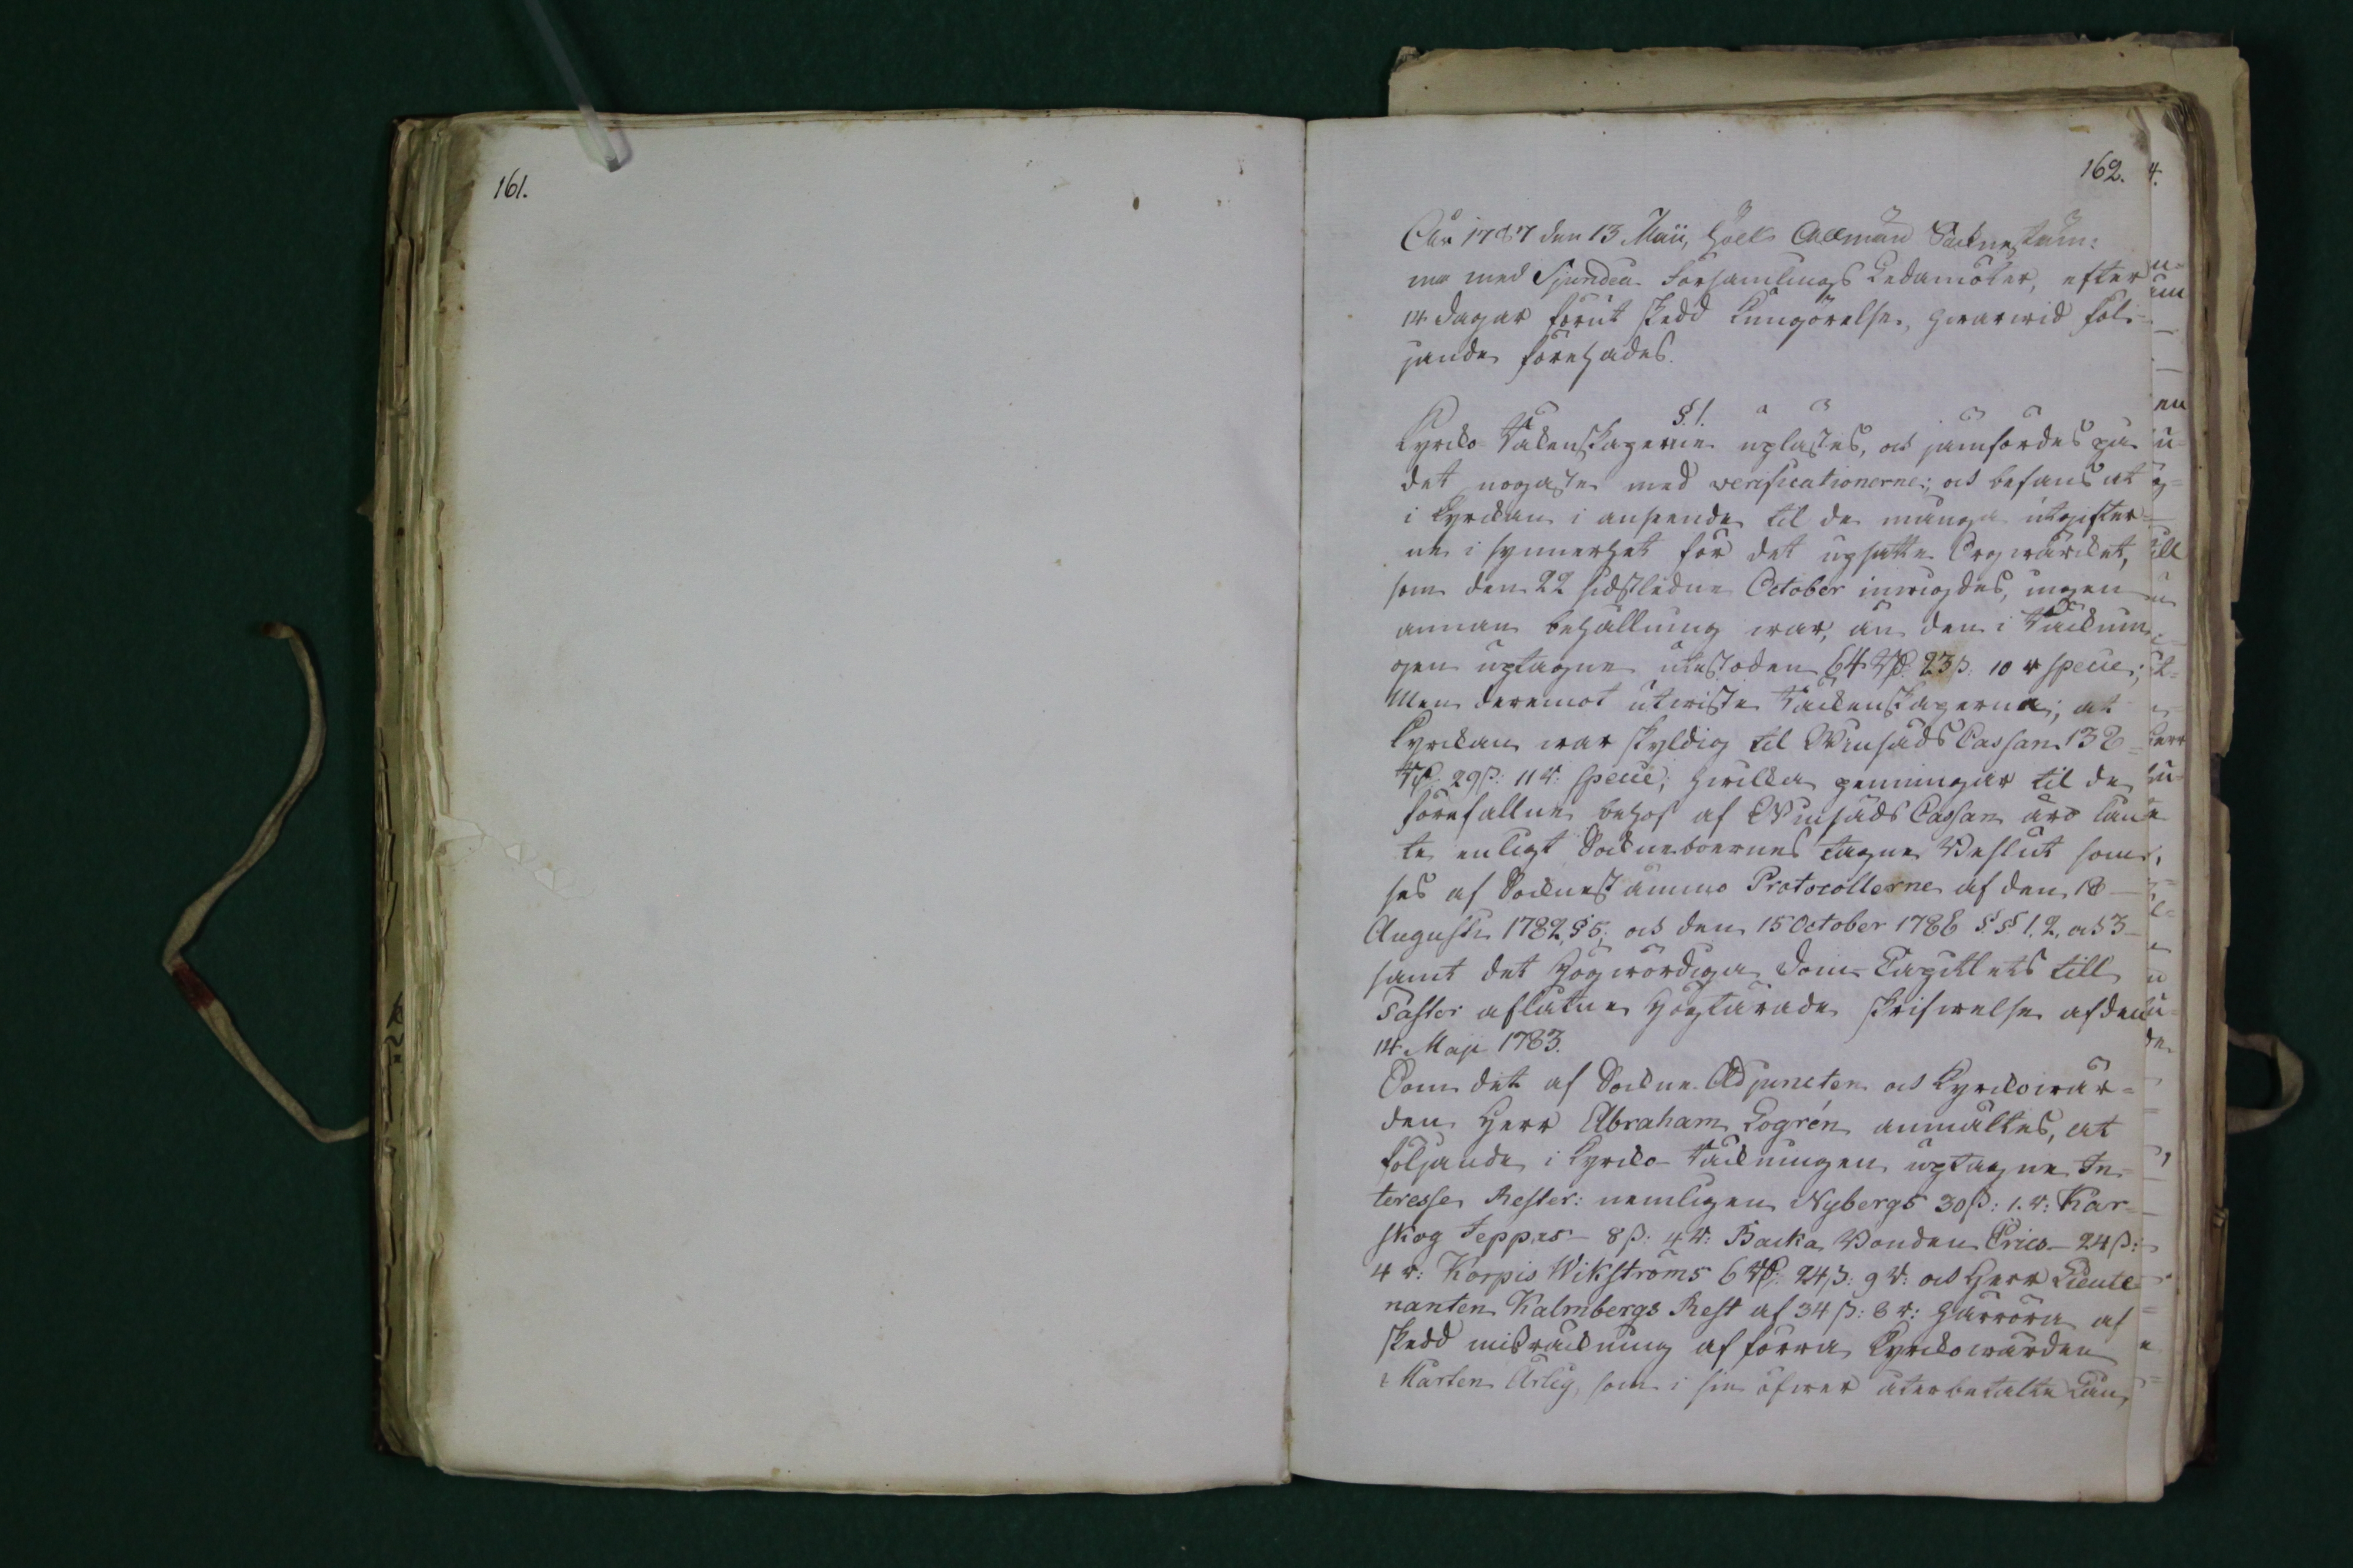 161.
162.
År 1787 den 13 Maii, hölls Allmän Sockneståm-
ma med Sjundeå Församlings Ledamöter, efter
14 dagar förut skedd kungörelse, hwarwid föl-
jande förehades.
§ 1.
Kyrko Räkenskaperne uplästes, och jämfördes på
det nogaste med verificationerne; och befans at
i Kyrkan i anseende til de många utgifter-
ne i synnerhet för det upsatte Orgwärcket,
som den 22 sidstledne October inwigdes, ingen
annan behållning war, än den i Räknin
gen uptagne utestoden 64 Rd. 23 ß. 10 r specie;
Men deremot utwiste Räkenskaperna; at
Kyrkan war skyldig til Winsäds Cassan 132
Rd. 29 ß: 11 r: specie; hwilcka penningar til de
förefallne behof af Winsäds Cassan äro lån
te enligt Sockneboernes tagne Beslut som
ses af Socknestämmo Protocollerne af den 18
Augusti 1782, § 5; och den 15 October 1786 §§ 1, 2, och 3
samt det Högwördiga Dom-Capitlets till
Pastor aflåtne Högtärade skrifwelse af den
14 Maji 1783.
Som det af Sockne Adjuncten och Kyrkowär-
den Herr Abraham Logrén anmältes, at
följande i Kyrko-Räkningen uptagne In-
teresse Rester: nemligen Nybergs 30 ß: 1. r: Kar-
skog Jeppas 8 ß: 4 r: Backa Bonden Erics 24 ß:
4 r: Korpis Wikströms 6 Rd: 24 ß: 9 r: och Herr Lieute
nanten Kalmbergs Rest af 34 ß: 8 r: härröra af
skedd misräkning af förra Kyrkowärden
Mårten Ärlig, som i sin öfwer återbetalte Lån,